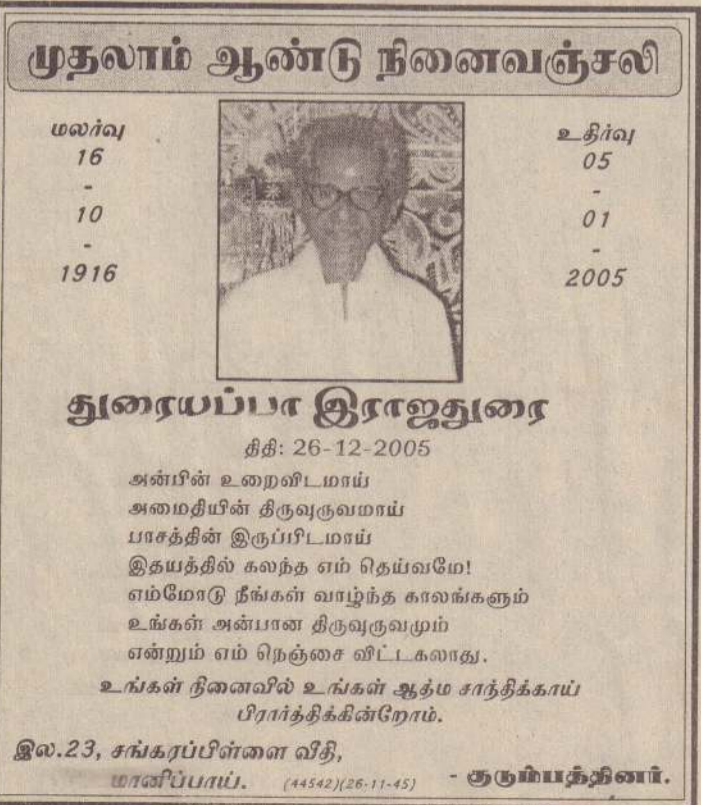 முதலாம் ஆண்டு நினைவஞ்சலி
மலர்வு
16
-
10
-
1916
உதிர்வு
05
-
01
-
2005
துரையப்பா இராஜதுரை
திதி: 26-12-2005
அன்பின் உறைவிடமாய்
அமைதியின் திருவுருவமாய்
பாசத்தின் இருப்பிடமாய்
இதயத்தில் கலந்த எம் தெய்வமே!
எம்மோடு நீங்கள் வாழ்ந்த காலங்களும்
உங்கள் அன்பான திருவுருவமும்
என்றும் எம் நெஞ்சை விட்டகலாது.
உங்கள் நினைவில் உங்கள் ஆத்ம சாந்திக்காய்
பிரார்த்திக்கின்றோம்.
இல.23, சங்கரப்பிள்ளை வீதி,
மானிப்பாய். (44542)(26-11-45) - குடும்பத்தினர்.